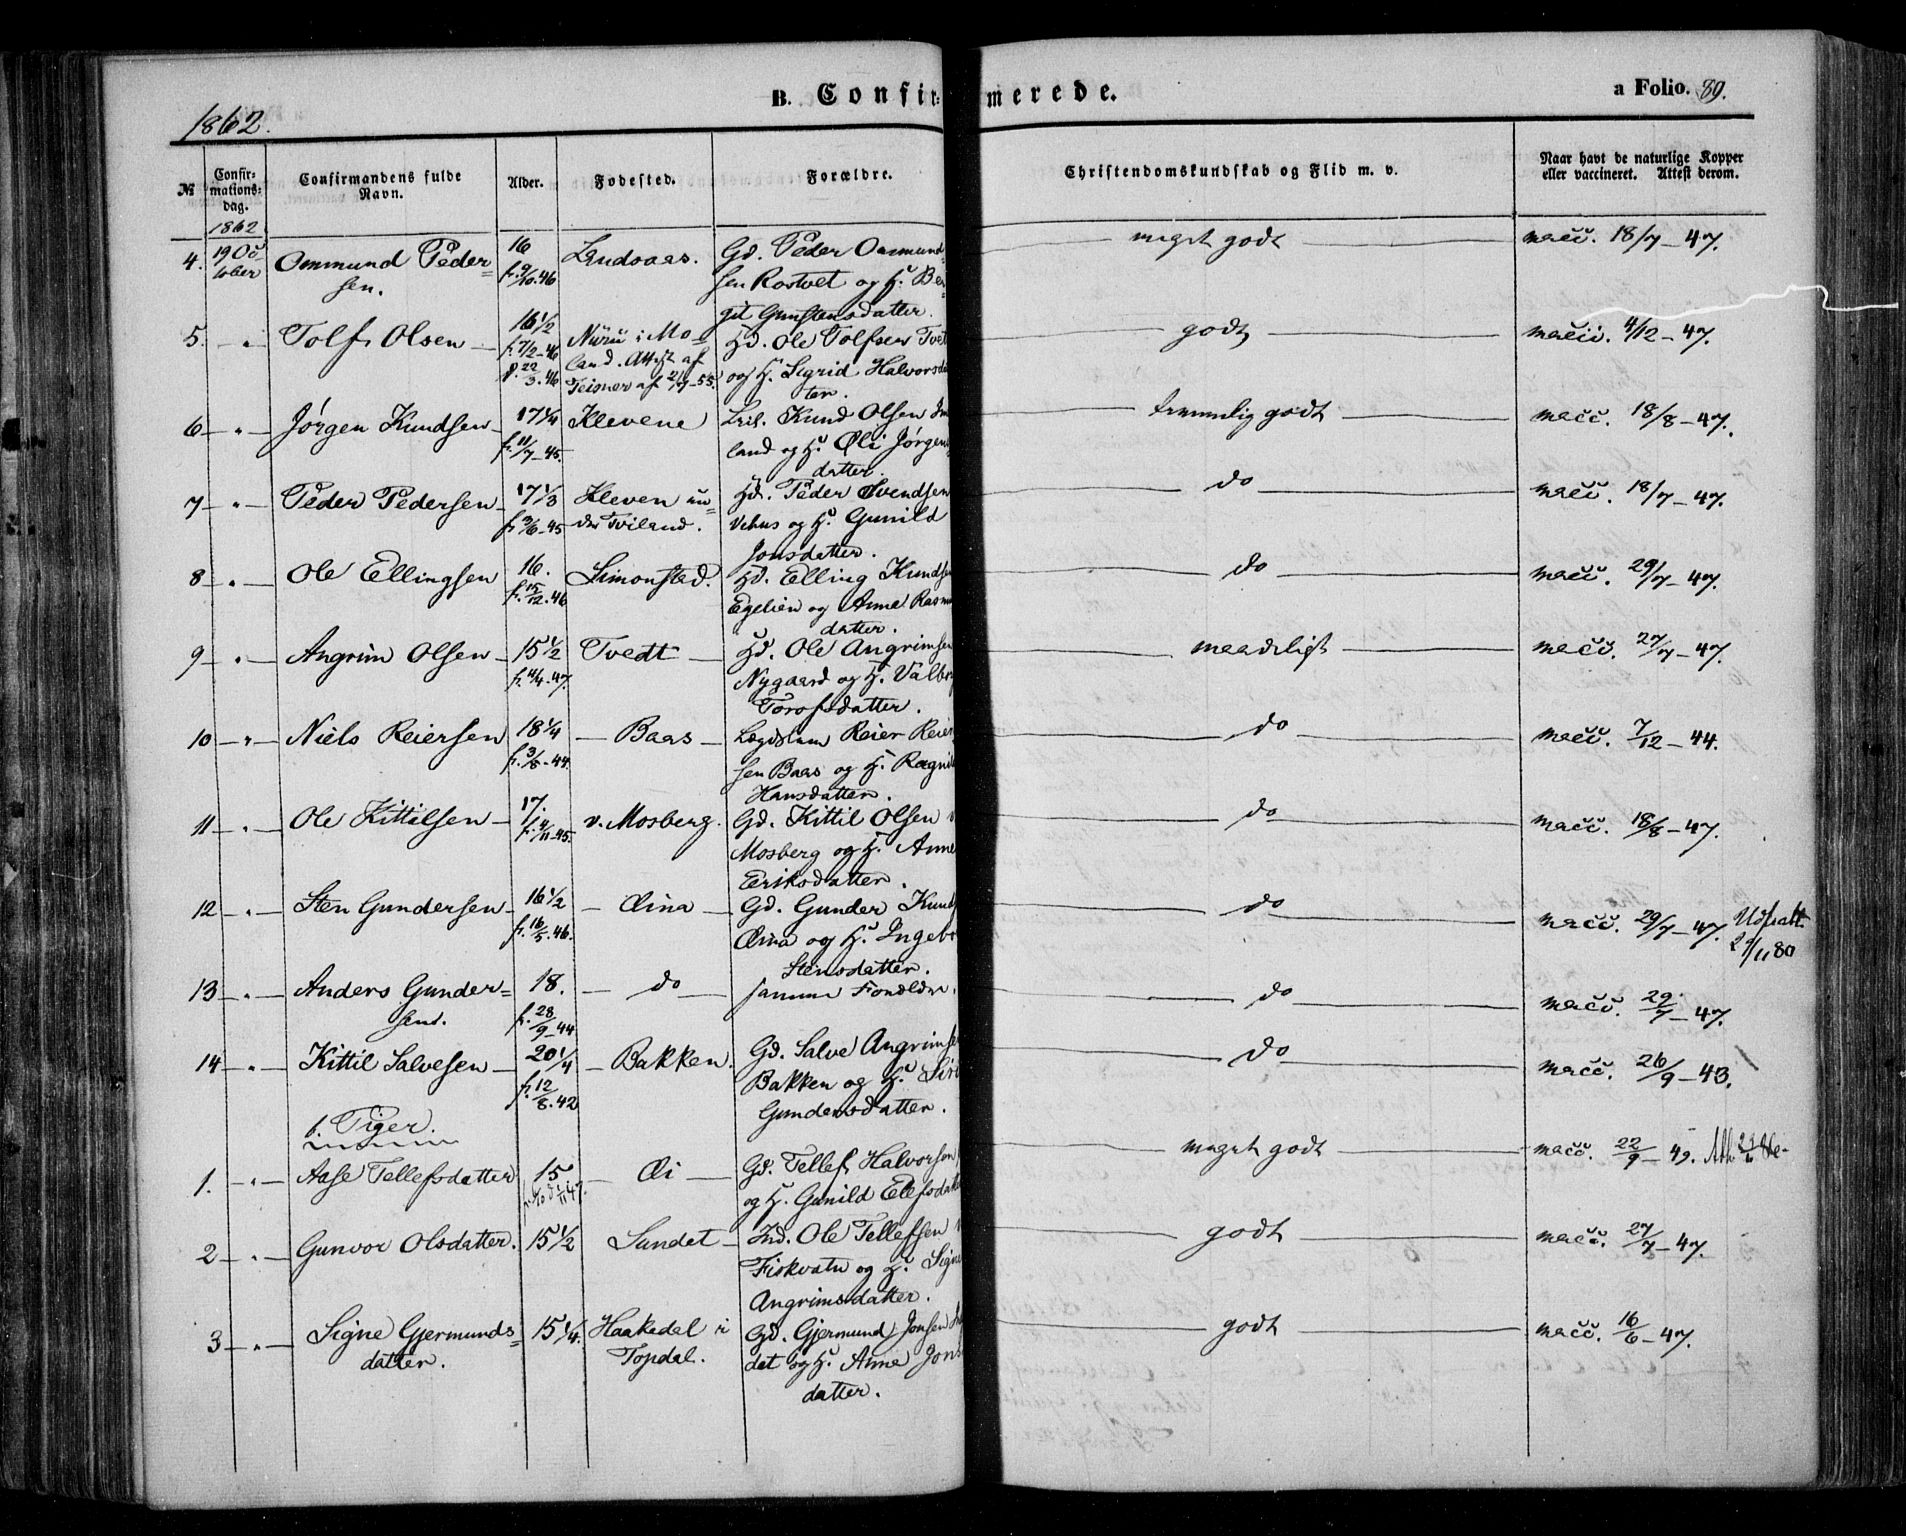 1862.
B. Confir= merede.
a Folio. 89.
№
Confir=
mations=
dag.
Confirmandens fulde
Navn.
Alder.
Fødested.
Forældre.
Christendomskundskab og Flid m. v.
Naar havt de naturlige Kopper
eller vaccineret. Attest derom.
1862
4. 19 Oc Ommund Peder= 16 Lindsaas. Gd. Peder Ommund meget godt vacc. 18/7 - 47.
tober sen. f. 9/10. 46 sen Rostvet og H. Ber
git Gunstensdatter.
5. - " Tolf Olsen 16 1/2 i Mo- Hd. Ole Tolfsen Tvet godt vacc. 4/12 - 47.
f. 7/2 - 46 land. Attest af og H. Sigrid Halvorsda
d. 22/3. 46 Teisner af 2/7 - 55. ter.
6 - " Jørgen Knudsen 17 1/4 Klevene Knud Olsen temmelig godt vacc. 18/8 - 47.
f. 11/7 - 45. land og H. Oli Jørgens
datter.
7 - " Peder Pedersen 17 1/3 Kleven un= Hd. Peder Svendsen do vacc. 18/7 - 47.
f. 3/6 - 45 der Tviland. Vehus og H. Gunild
Jonsdatter.
8 - " Ole Ellingsen 16. Simonsted. Hd. Elling Knudsen do vacc. 29/7 - 47.
f. 15/12. 46 Egelien og Anne Rasm
datter.
9 - " Angrim Olsen 15 1/2 Tvedt Hd. Ole Angrimsen maadeligt vacc. 27/7 - 47.
f. 4/4 - 47. Nygaard og H. Valbor
Torofsdatter.
10 - " Niels Reiersen 18 1/4 Baas Lægdslem Reier Reier do vacc. 7/12 - 44.
f. 3/8 - 44. sen Baas og H. Ragnil
Hansdatter.
11 - " Ole Kittilsen 17. v. Mosberg. Gd. Kittil Olsen v do vacc. 18/8 - 47.
f. 4/11 - 45. Mosberg og H. Anne
Eriksdatter.
12 - " Sten Gundersen 16 1/2 Øina Gd. Gunder Knud do vacc. 29/7 - 47. Udsatt.
f. 16/5. 46. Øina og H. Ingebo 29/11 80
Stensdatter.
13 - " Anders Gunder= 18. do samme Forældre. do vacc. 29/7 - 47.
sen. f. 28/9 - 44
14 - " Kittil Salvesen 20 1/4 Bakken. Gd. Salve Angrimse do vacc. 26/9 - 43.
f. 12/8. 42 Bakken og H. Siri
Gundersdatter.
b. Piger.
1. - " Aase Tellefsdatter 15 Øi Gd. Tellef Halvorsen meget godt vacc. 22/9 - 49.
og H. Gunild Elefsdatte
2 - " Gunvor Olsdatter. 15 1/2 Sundet Ind. Ole Tellefsen godt vacc. 27/7 - 47.
Fiskvatn og H. Signe
Angrimsdatter.
3 - " Signe Gjermunds= 15 1/4. Haakedal i Gd. Gjermund Jonsen godt vacc. 16/6 - 47.
datter. Topdal. dal og H. Anne Jons
datter.